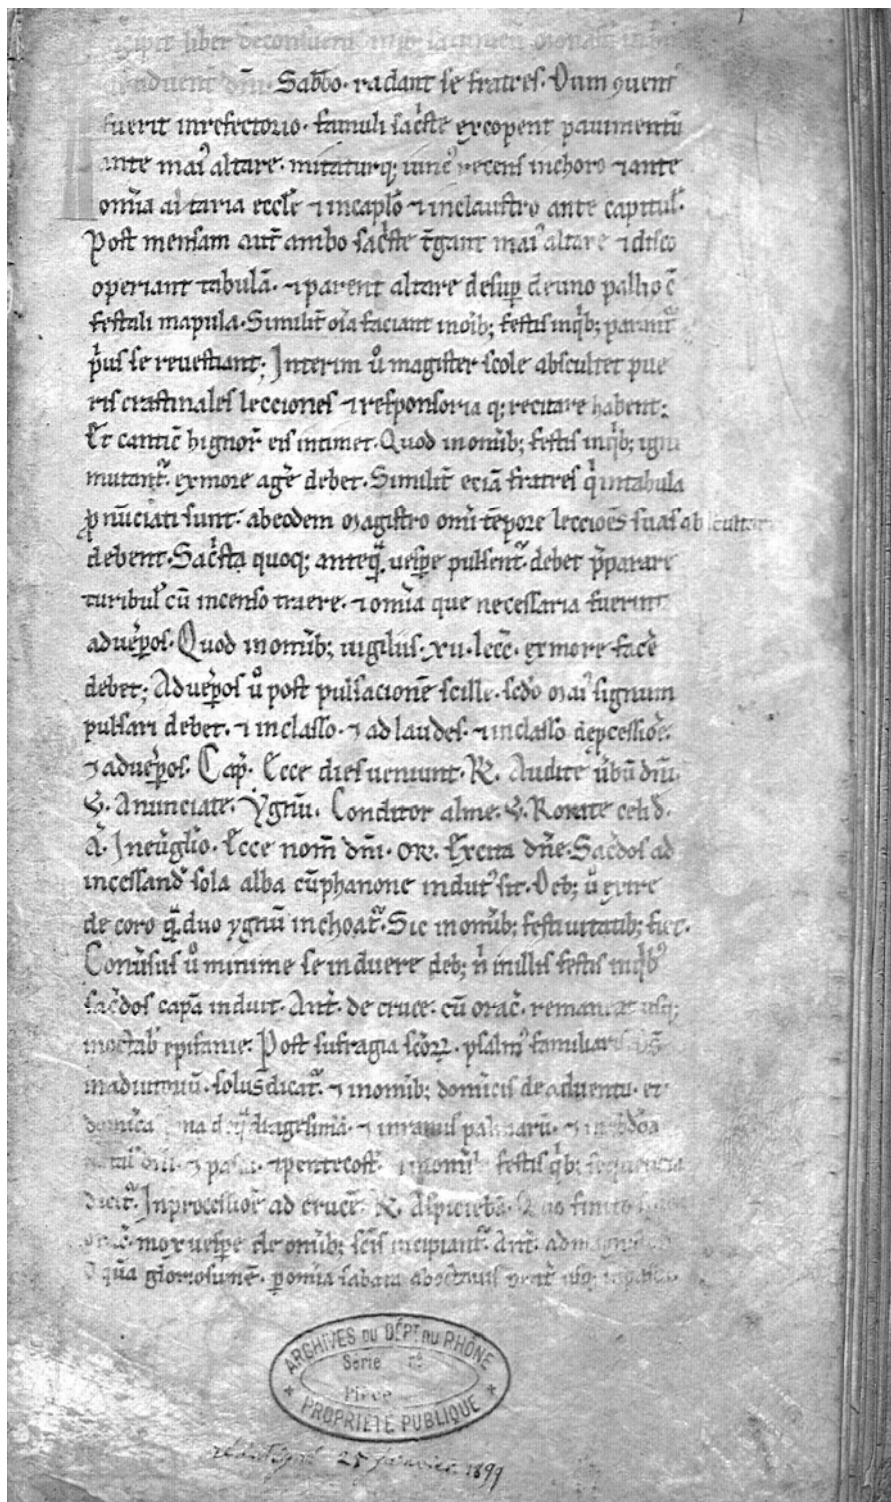 liber
Sabb̄o. radant se fratres. Dum ꝯuent᷒
fuerit inrefectorio. famuli sac̄ste excopent pauimentū
ante mai᷒ altare. mitaturq; iunc᷒ recens inchoro ⁊ante
om̄ia altaria eccl̄e ⁊incapl̄o ⁊inclaustro ante capitul᷒.
Post mensam aut̄ ambo sac̄ste t̄gant mai᷒ altare ⁊disco
operiant tabulā. ⁊parent altare desuꝑ deuno pallio c̄
festali mapula. Similit̄ oīa faciant inoīb; festis inqͥb;
pͥus se reuestiant; Interim ů magister scole abscultet pue
ris crastinales lecciones ⁊responsoria q; recitare habent;
Et cantic̄ bignor̄ eis intimet. Quod inom̄ib; festis inqͥb; igni
mutantᷣ. exmore agēe debet. Similit̄ eciā fratres qͥ intabula
ꝓnūciati sunt. abeodem magistro om̄i tēpore leccioēs suas abscultare
debent. Sac̄sta quoq; anteqͣ uesꝑe pulsentᷣ. debet p̄parare
turibul᷒ cū incenso traere. ⁊om̄ia que necessaria fuerint
adueꝑos. Quod inom̄ib; uigiliis. xii. lecc̄. exmore facēe
debet; Adueꝑos ů post pulsacionē scille. scd̄o mai᷒ signum
pulsari debet. ⁊ inclasso. ⁊ ad laudes. ⁊ inclasso deꝓcessioē.
⁊ adueꝑos. Cap̄. Ecce dies ueniunt. ℟. Audite ūbū dn̄i.
℣. Anunciate. Ygnū. Conditor alme. ℣. Rorate celi d.
A᷒. Ineūglio. Ecce nom̄ dn̄i. oR. Excita dn̄e. Sac̄dos ad
incessand᷒ sola alba cūphanone indut᷒ sit. Deb; ů exire
de coro qͣdo ygnū inchoatᷣ. Sic inom̄ib; festiuitatib; fiet.
Conūsus ů minime se induere deb; n̄ inillis festis inqͥb᷒
sac̄dos capā induit. Ant̄. de cruce. cū orac̄. remaneat usq;
inoctab᷒ epifanie. Post sufragia sc̄oꝝ. psalm᷒ familiaris
solus dicatᷣ. ⁊ inom̄ib; domīcis deaduentu. et
domīca ⁊ inramis palmarū. ⁊
⁊ pasce. ⁊pentecost̄. festis qͥb; sequencia
dicitᷣ. Inprocessioē ad crucē. ℟. Aspiciebā. Quo finito
mox uesꝑe de om̄ib; sc̄is incipiantᷣ. Ant̄.
ꝑom̄ia sabata aboctauis
ARCHIVES DU DÉPT DU RHÔNE
Série nº
Pièce
PROPRIÉTÉ PUBLIQUE
25 janvier 1899